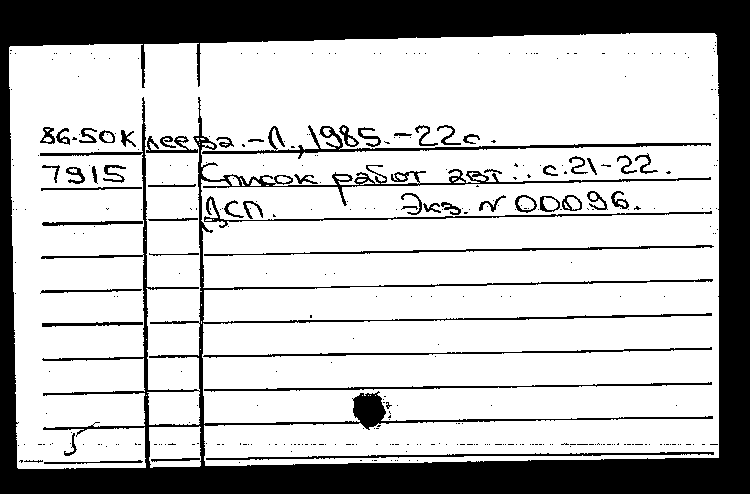 86-50К леева.-Л., 1985.-22с.
7915 Список работ авт.: с.21-22.
ДСП. Экз. № 00096.
5